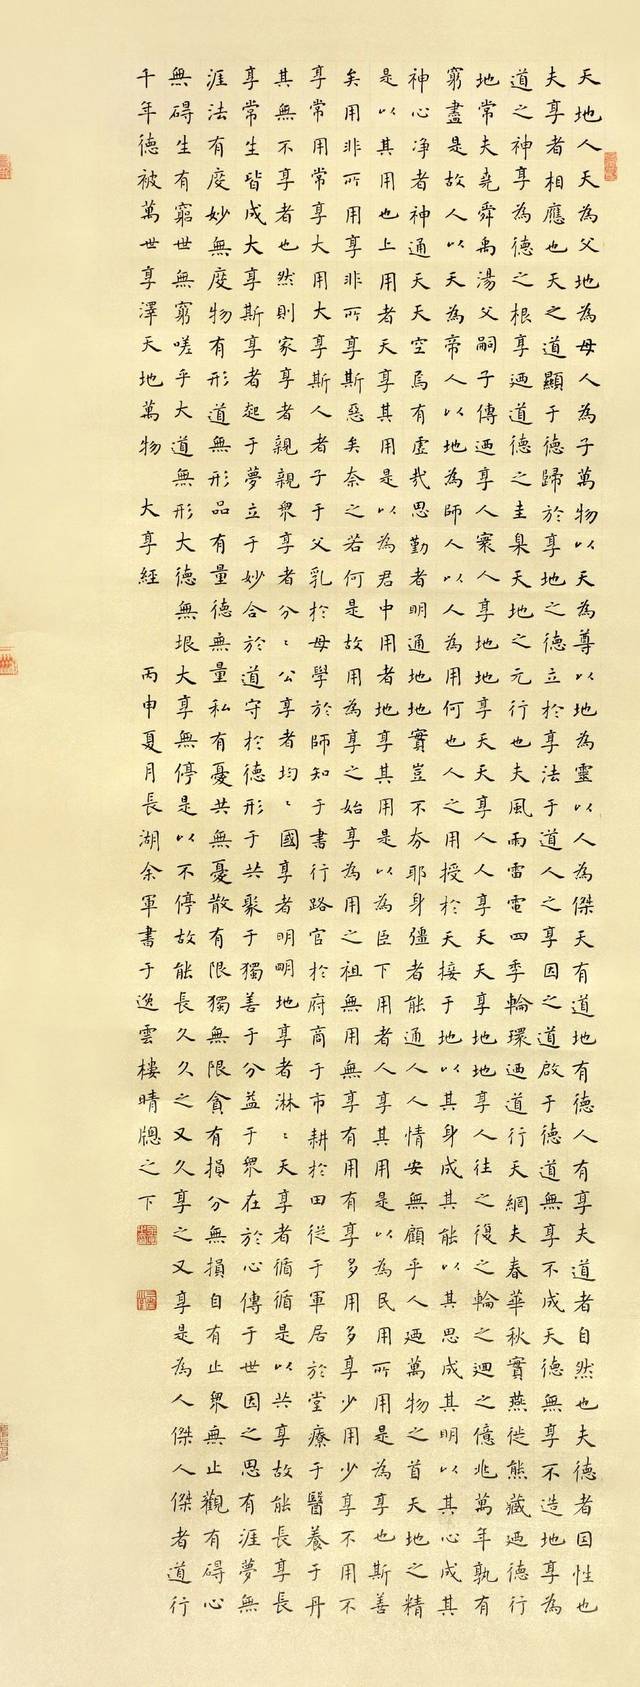 天地人天為父地為母人為子萬物以天為尊以地為靈以人為傑天有道地有德人有享夫道者自然也夫德者因性也
夫享者相應也天之道顯于德歸於享地之德立於享法于道人之享因之道啟于德道無享不成天德無享不造地享為
道之神享為德之根享迺道德之圭臬天地之元行也夫風雨雷電四季輪環迺道行天網夫春華秋實燕徙熊藏迺德行
地常夫堯舜禹湯父嗣子傳迺享人寰人享地地享天天享人人享天天享地地享人往之復之輪之迴之億兆萬年孰有
窮盡是故人以天為帝人以地為師人以人為用何也人之用授於天接于地以其身成其能以其思成其明以其心成其
神心净者神通天天空焉有虛哉思勤者明通地地實豈不夯耶身彊者能通人人情安無顧乎人迺萬物之首天地之精
是以其用也上用者天享其用是以為君中用者地享其用是以為臣下用者人享其用是以為民用所用是為享也斯善
矣用非所用享非所享斯惡矣奈之若何是故用為享之始享為用之祖無用無享有用有享多用多享少用少享不用不
享常用常享大用大享斯人者子于父乳於母學於師知于書行路官於府商于市耕於田從于軍居於堂療于醫養于丹
其無不享者也然則家享者親親衆享者分〻公享者均〻國享者明明地享者淋〻天享者循循是以共享故能長享長
享常生皆成大享斯享者起于夢立于妙合於道守於德形于共聚于獨善于分益于衆在於心傳于世因之思有涯夢無
涯法有度妙無度物有形道無形品有量德無量私有憂共無憂散有限獨無限貪有損分無損自有止衆無止觀有碍心
無碍生有窮世無窮嗟乎大道無形大德無垠大享無停是以不停故能長久久之又久享之又享是為人傑人傑者道行
千年德被萬世享澤天地萬物　大享經　丙申夏月長湖余軍書于逸雲樓晴牕之下